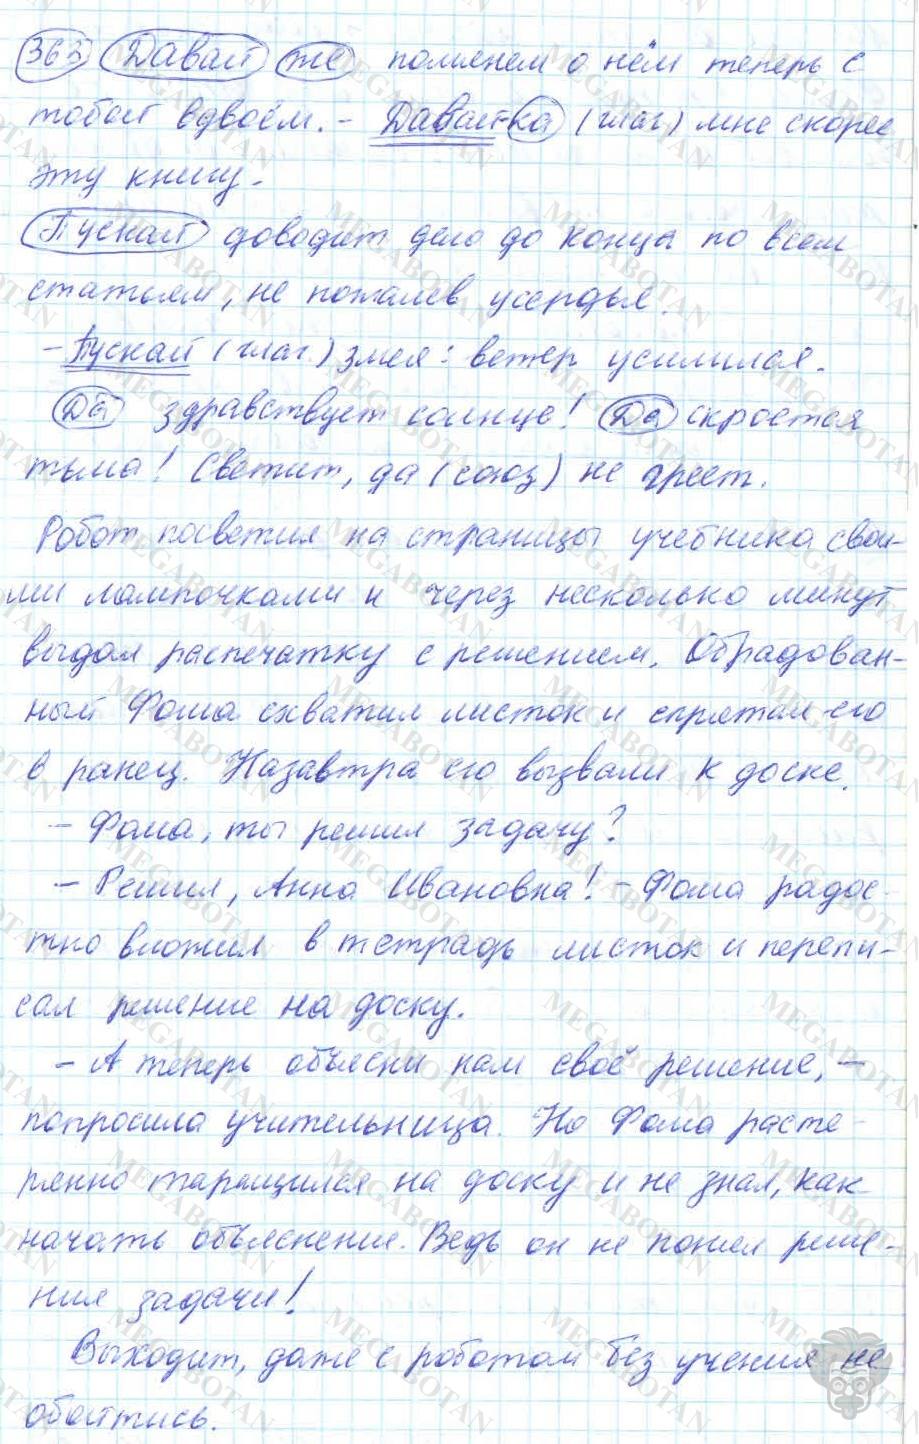 363 Давай же помянем о нём теперь с
тобой вдвоём. - Давай-ка (глаг) мне скорее
эту книгу.
Пускай доводит дело до конца по всем
статьям, не пожалев усердья.
- Пускай (глаг.) змея: ветер усилился.
Да здравствует солнце! Да скроется
тьма! Светит, да (союз) не греет.
Робот посветил на страницы учебника свои-
ми лампочками и через несколько минут
выдал распечатку с решением. Обрадован-
ный Фома схватил листок и спрятал его
в ранец. Назавтра его вызвали к доске.
- Фома, ты решил задачу?
- Решил, Анна Ивановна! - Фома радос-
тно вложил в тетрадь листок и перепи-
сал решение на доску.
- А теперь объясни нам своё решение, -
попросила учительница. Но Фома расте-
рянно таращился на доску и не знал, как
начать объяснение. Ведь он не понял реше-
ния задачи!
Выходит, даже с роботом без учения не
обойтись.